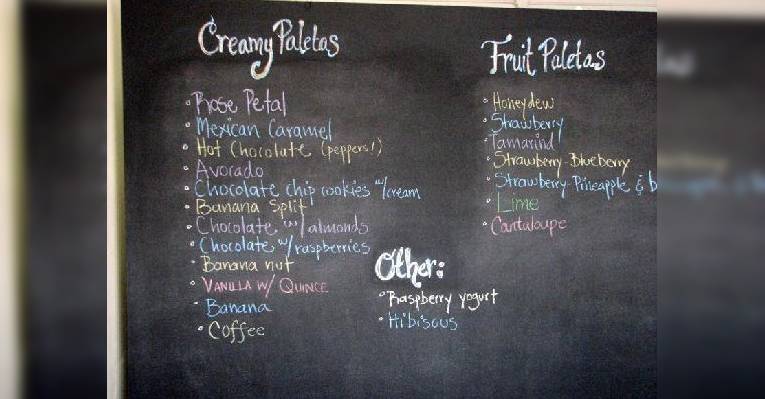 Creamy Paletas
Rose Petal
Mexican Caramel
Hot Chocolate (peppers!)
Avorado
Chocolate chip cookies w/cream
Banana Split
Chocolate w/almonds
Chocolate w/raspberries
Banana nut
VANILLA W/ QUINCE
Banana
Coffee
Fruit Paletas
Honeydew
Strawberry
Tamarind
Strawberry-Blueberry
Strawberry-Pineapple & b
Lime
Cantaloupe
Other:
Raspberry yogurt
Hibiscus